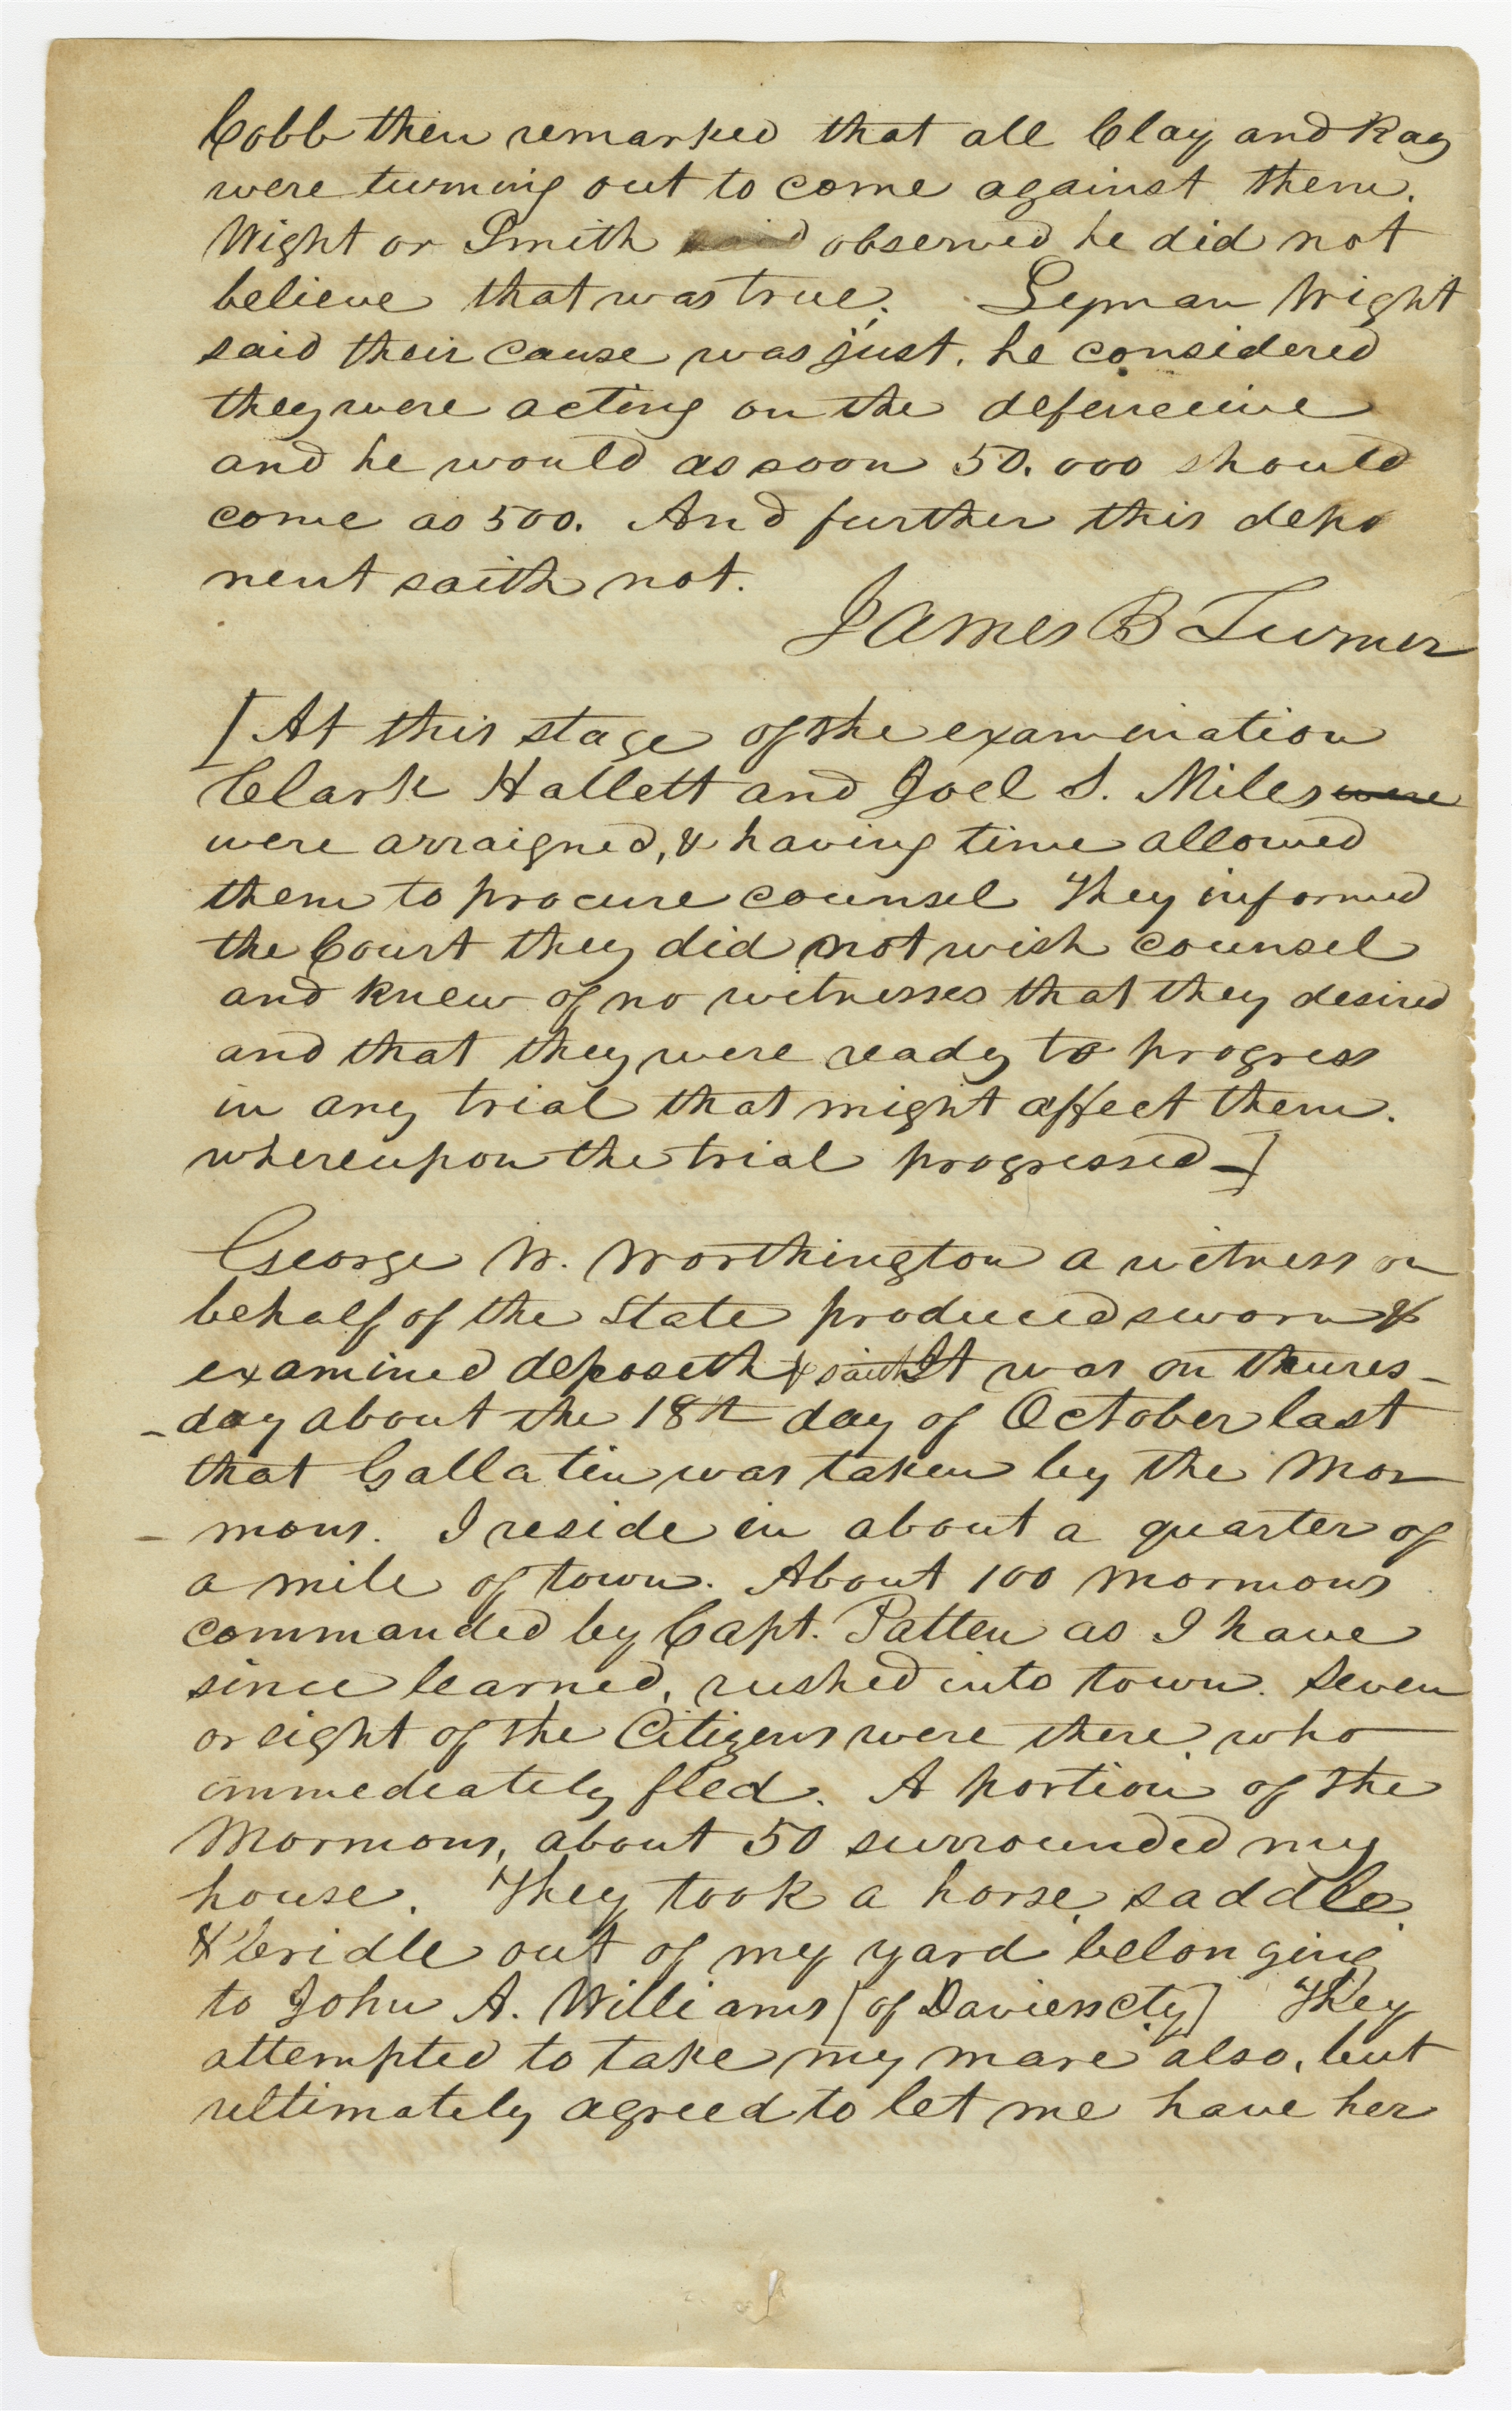 Cobb then remarked that all Clay and Ray
were turning out to come against them.
Wight or Smith said observed he did not
believe that was true. Lyman Wight
said their cause was just. he considered
they were acting on the defenceive
and he would as soon 50.000 should
come as 500. And further this depo
nent saith not.
James B Turner
[At this stage of the examination
Clark Hallett and Joel S. Miles were
were arraigned, & having time allowed
them to procure counsel They informed
the Court they did not wish counsel
and knew of no witnesses that they desired
and that they were ready to progress
in any trial that might affect them.
whereupon the trial progressed—]
George W. Worthington a witness on
behalf of the State produced sworn &
examined deposeth & saith It was on thures-
-day about the 18th day of October last
that Gallatin was taken by the Mor
-mons. I reside in about a quarter of
a mile of town. About 100 mormons
commanded by Capt. Patten as I have
since learned, rushed into town. Seven
or eight of the Citizens were there who
immediately fled. A portion of the
Mormons, about 50 surrounded my
house. They took a horse, saddle
& bridle out of my yard belonging
to John A. Williams [of Daviess cty] They
attempted to take my mare also, but
ultimately agreed to let me have her